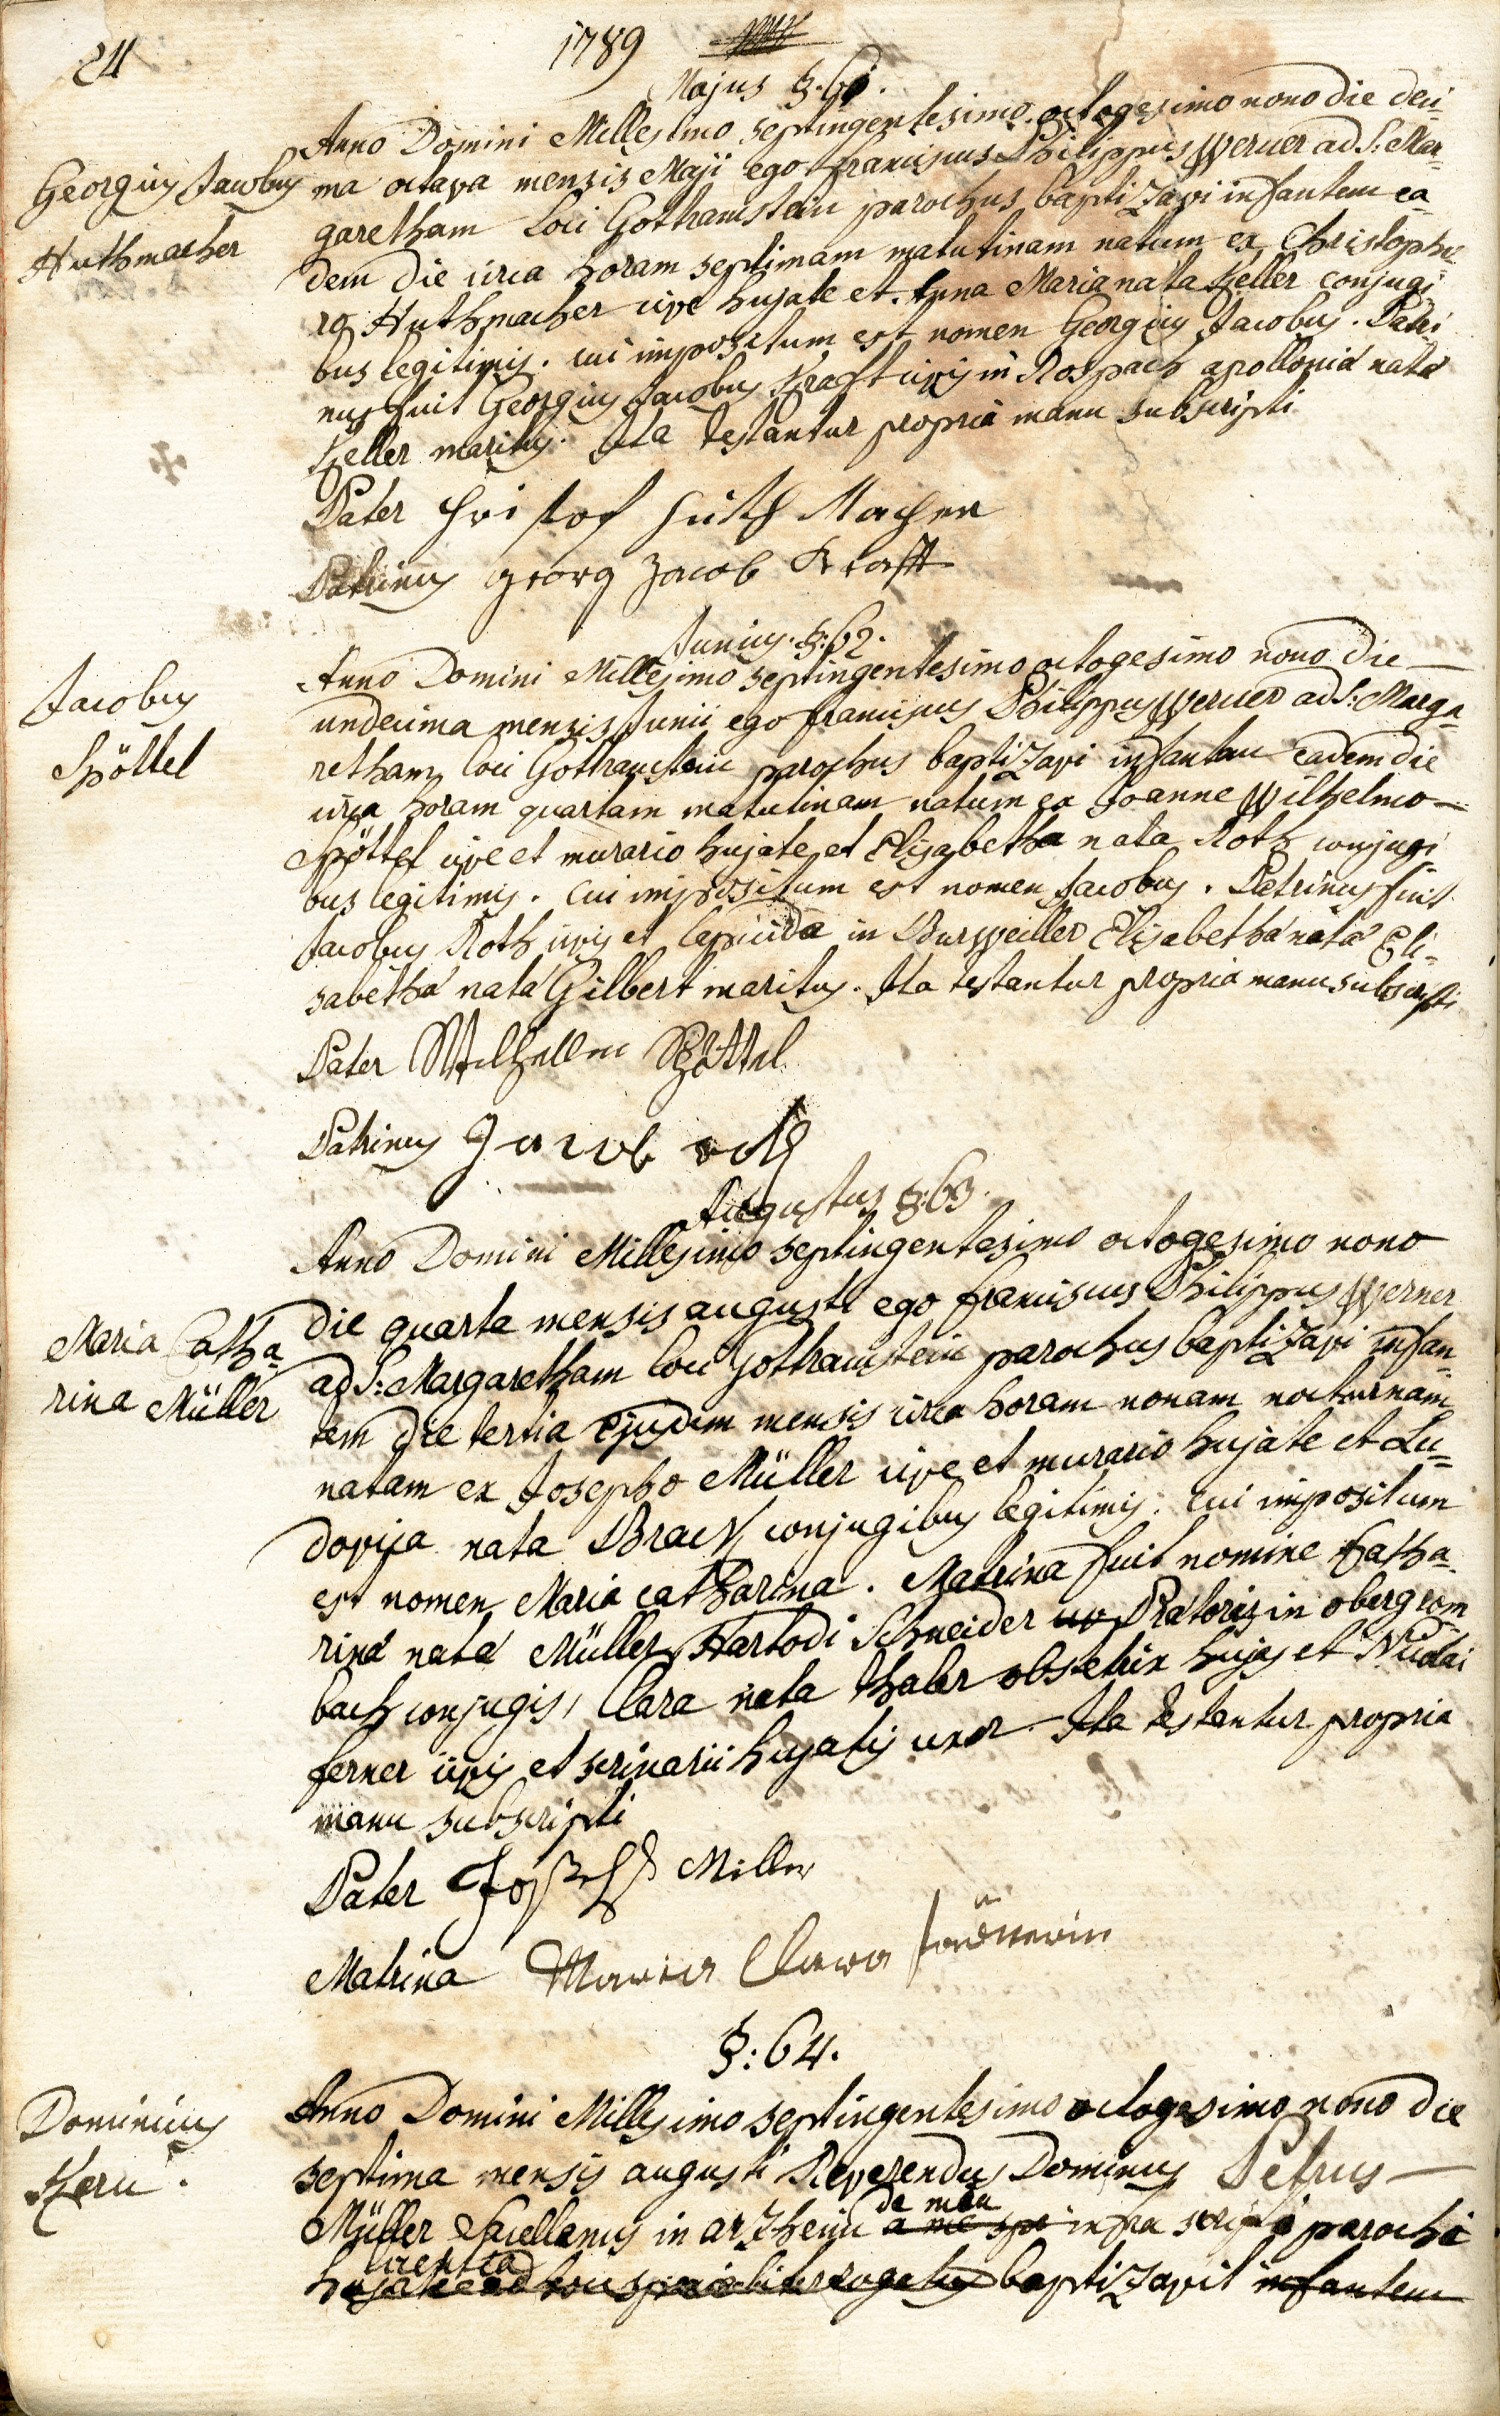 24
1789
Majus §. 61.
Georgius Jacobus
Huthmacher
Anno Domini Millesimo septingentesimo octogesimo nono die deci-
ma octava mensis Maji ego franciscus Philippus Werner ad S: Mar-
garetham Loci Gothramstein parochus baptizavi infantem ea-
dem die circa horam septimam matutinam natum ex Christopho-
ro Huthmacher cive hujate et Anna Maria nata Keller conjugi-
bus legitimis. cui impositum est nomen Georgius Jacobus. Patri-
nus fuit Georgius Jacobus Kraft civis in Rospach apolloniâ natâ
Keller maritus. Ita testantur propriâ manu subscripti
Pater Hristof Huth Macher
Patrinus georg Jacob Krafft
Junius. §: 62.
Jacobus
Spöttel
Anno Domini Millesimo septingentesimo octogesimo nono die
undecima mensis Junii ego franciscus Philippus Werner ad S: Marga-
retham loci Gothramstein parochus baptizavi infantem eadem die
circa horam quartam matutinam natum ex Joanne Wilhelmo
Spöttel cive et murario hujate et Elisabetha nata Roth conjugi-
bus legitimis. cui impositum est nomen Jacobus. Patrinus fuit
Jacobus Roth civis et lapicida in Burweiller Elisabethâ natâ Eli-
sabethâ natâ Gilbert maritus. Ita testantur propria manu subscripti
Pater Wilhellm Spöttel
Patrinus Jacob roth
Augustus §: 63.
Maria Catha-
rina Müller
Anno Domini Millesimo septingentesimo octogesimo nono
die quarta mensis augusti ego franciscus Philippus Werner
ad S: Margaretham loci Gothramstein parochus baptizavi infan-
tem die tertia ejusdem mensis circa horam nonam nocturnam
natam ex Josepho Müller cive et murario hujate et Lu-
dovica nata Brack conjugibus legitimis. cui impositum
est nomen Maria catharina. Matrina fuit nomine Catha-
rinâ natâ Müller Schneider Prætoris in obergrom
bach conjugis, Clara nata thaler obsetrix hujas et Nicolai
ferner civis et scrinarii hujatis uxor. Ita testantur propria
manu subscripti
Pater Joseph Miller
Matrina Maria Clara
§: 64.
Dominicus
Kern.
Anno Domini Millesimo septingentesimo octogesimo nono die
septima mensis augusti Reverendus Dominus Petrus
Müller Sacellanus in arzheim de mea infra scripti parochi
licentia baptizavit infantem